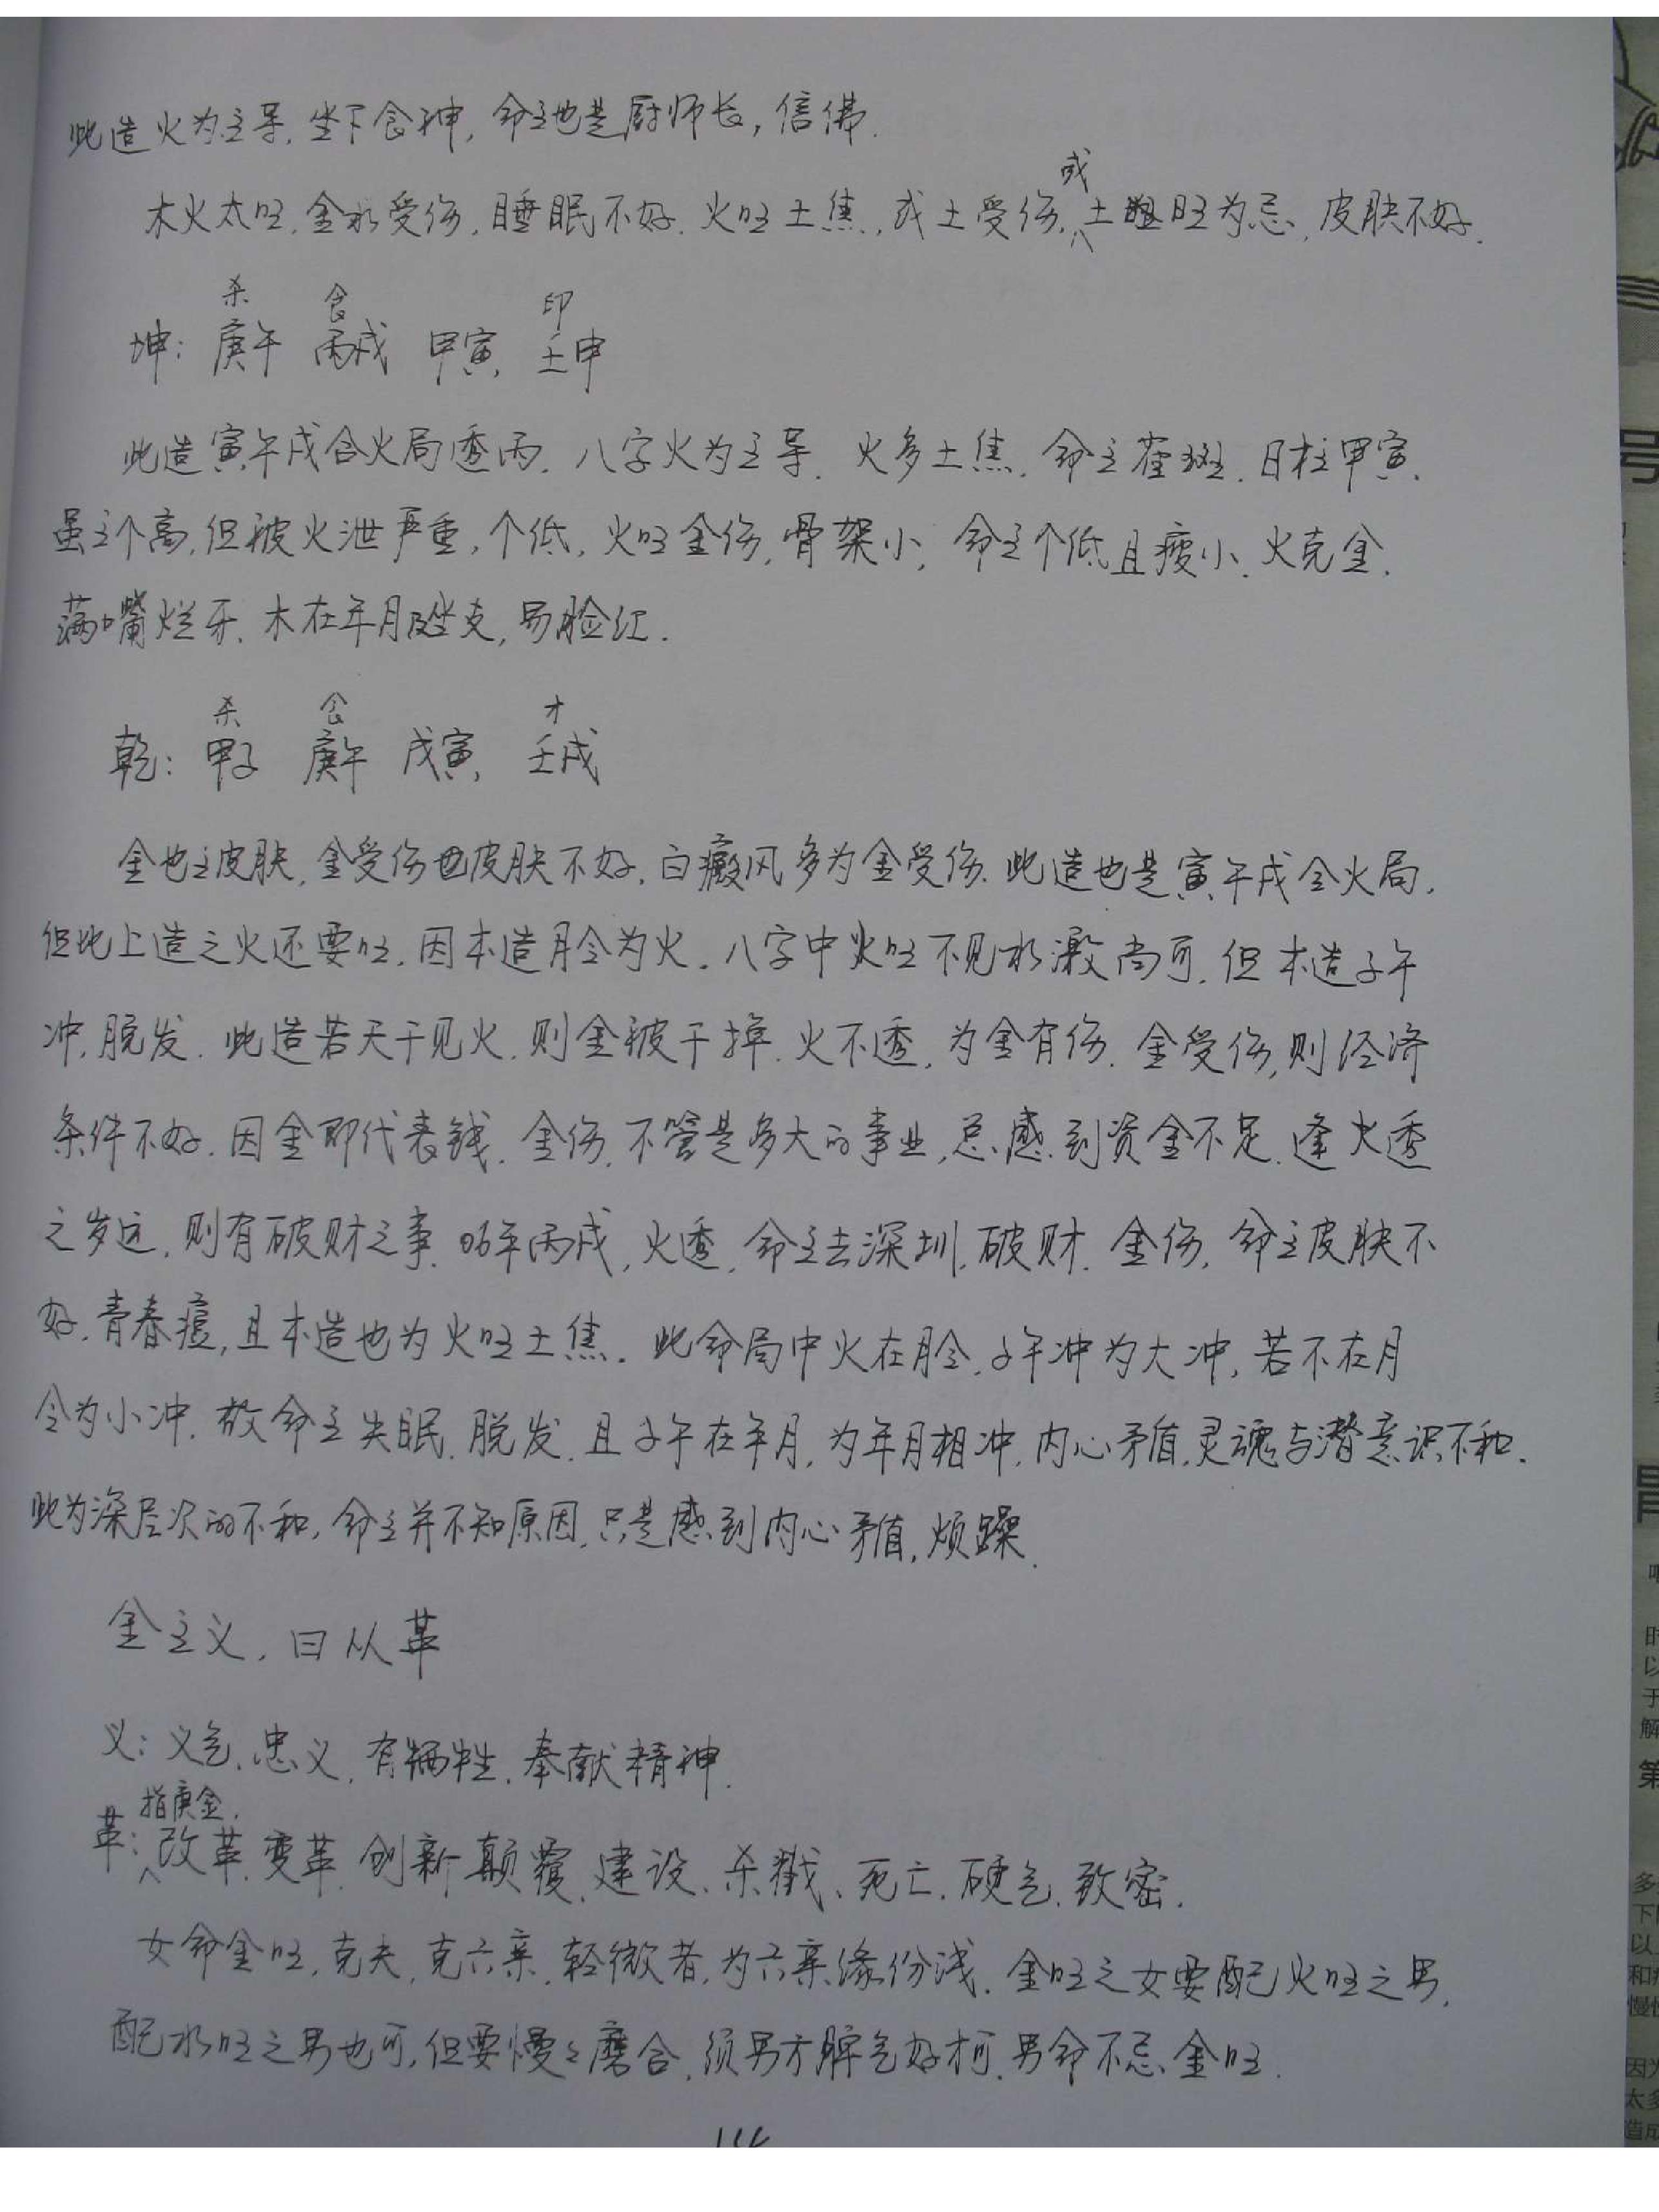 此造火为主导，坐下食神，命主也是厨师长，信佛.
木火太旺，金水受伤，睡眠不好.火旺土焦，戊土受伤，或土旺为忌，皮肤不好.
杀 食 印
坤：庚午 丙戌 甲寅 壬申
此造寅午戌合火局透丙.八字火为主导.火多土焦.命主雀斑.日柱甲寅.
虽主个高，但被火泄严重，个低，火旺金伤，骨架小，命主个低且瘦小.火克金.
满嘴烂牙.木在年月及坐支，易脸红.
杀 食 才
乾：甲子 庚午 戊寅 壬戌
金也主皮肤，金受伤也皮肤不好.白癜风多为金受伤.此造也是寅午戌合火局.
但比上造之火还要旺.因本造月令为火.八字中火旺不见水激尚可.但本造子午
冲，脱发.此造若天干见火.则金被干掉.火不透，为金有伤.金受伤，则经济
条件不好.因金即代表钱.金伤.不管是多大的事业，总感到资金不足.逢火透
之岁运，则有破财之事.06年丙戌，火透，命主去深圳，破财.金伤，命主皮肤不
好.青春痘，且本造也为火旺土焦.此命局中火在月令.子午冲为大冲，若不在月
令为小冲.故命主失眠.脱发.且子午在年月，为年月相冲，内心矛盾，灵魂与潜意识不和.
此为深层次的不和，命主并不知原因，只是感到内心矛盾，烦躁.
金主义，曰从革
义：义气、忠义、有牺牲、奉献精神.
指庚金.
革：改革.变革.创新.颠覆.建设、杀戮、死亡.硬气.致密.
女命金旺，克夫，克六亲.轻微者，为六亲缘份浅.金旺之女要配火旺之男.
配水旺之男也可，但要慢々磨合.须男方脾气好才可.男命不忌金旺.